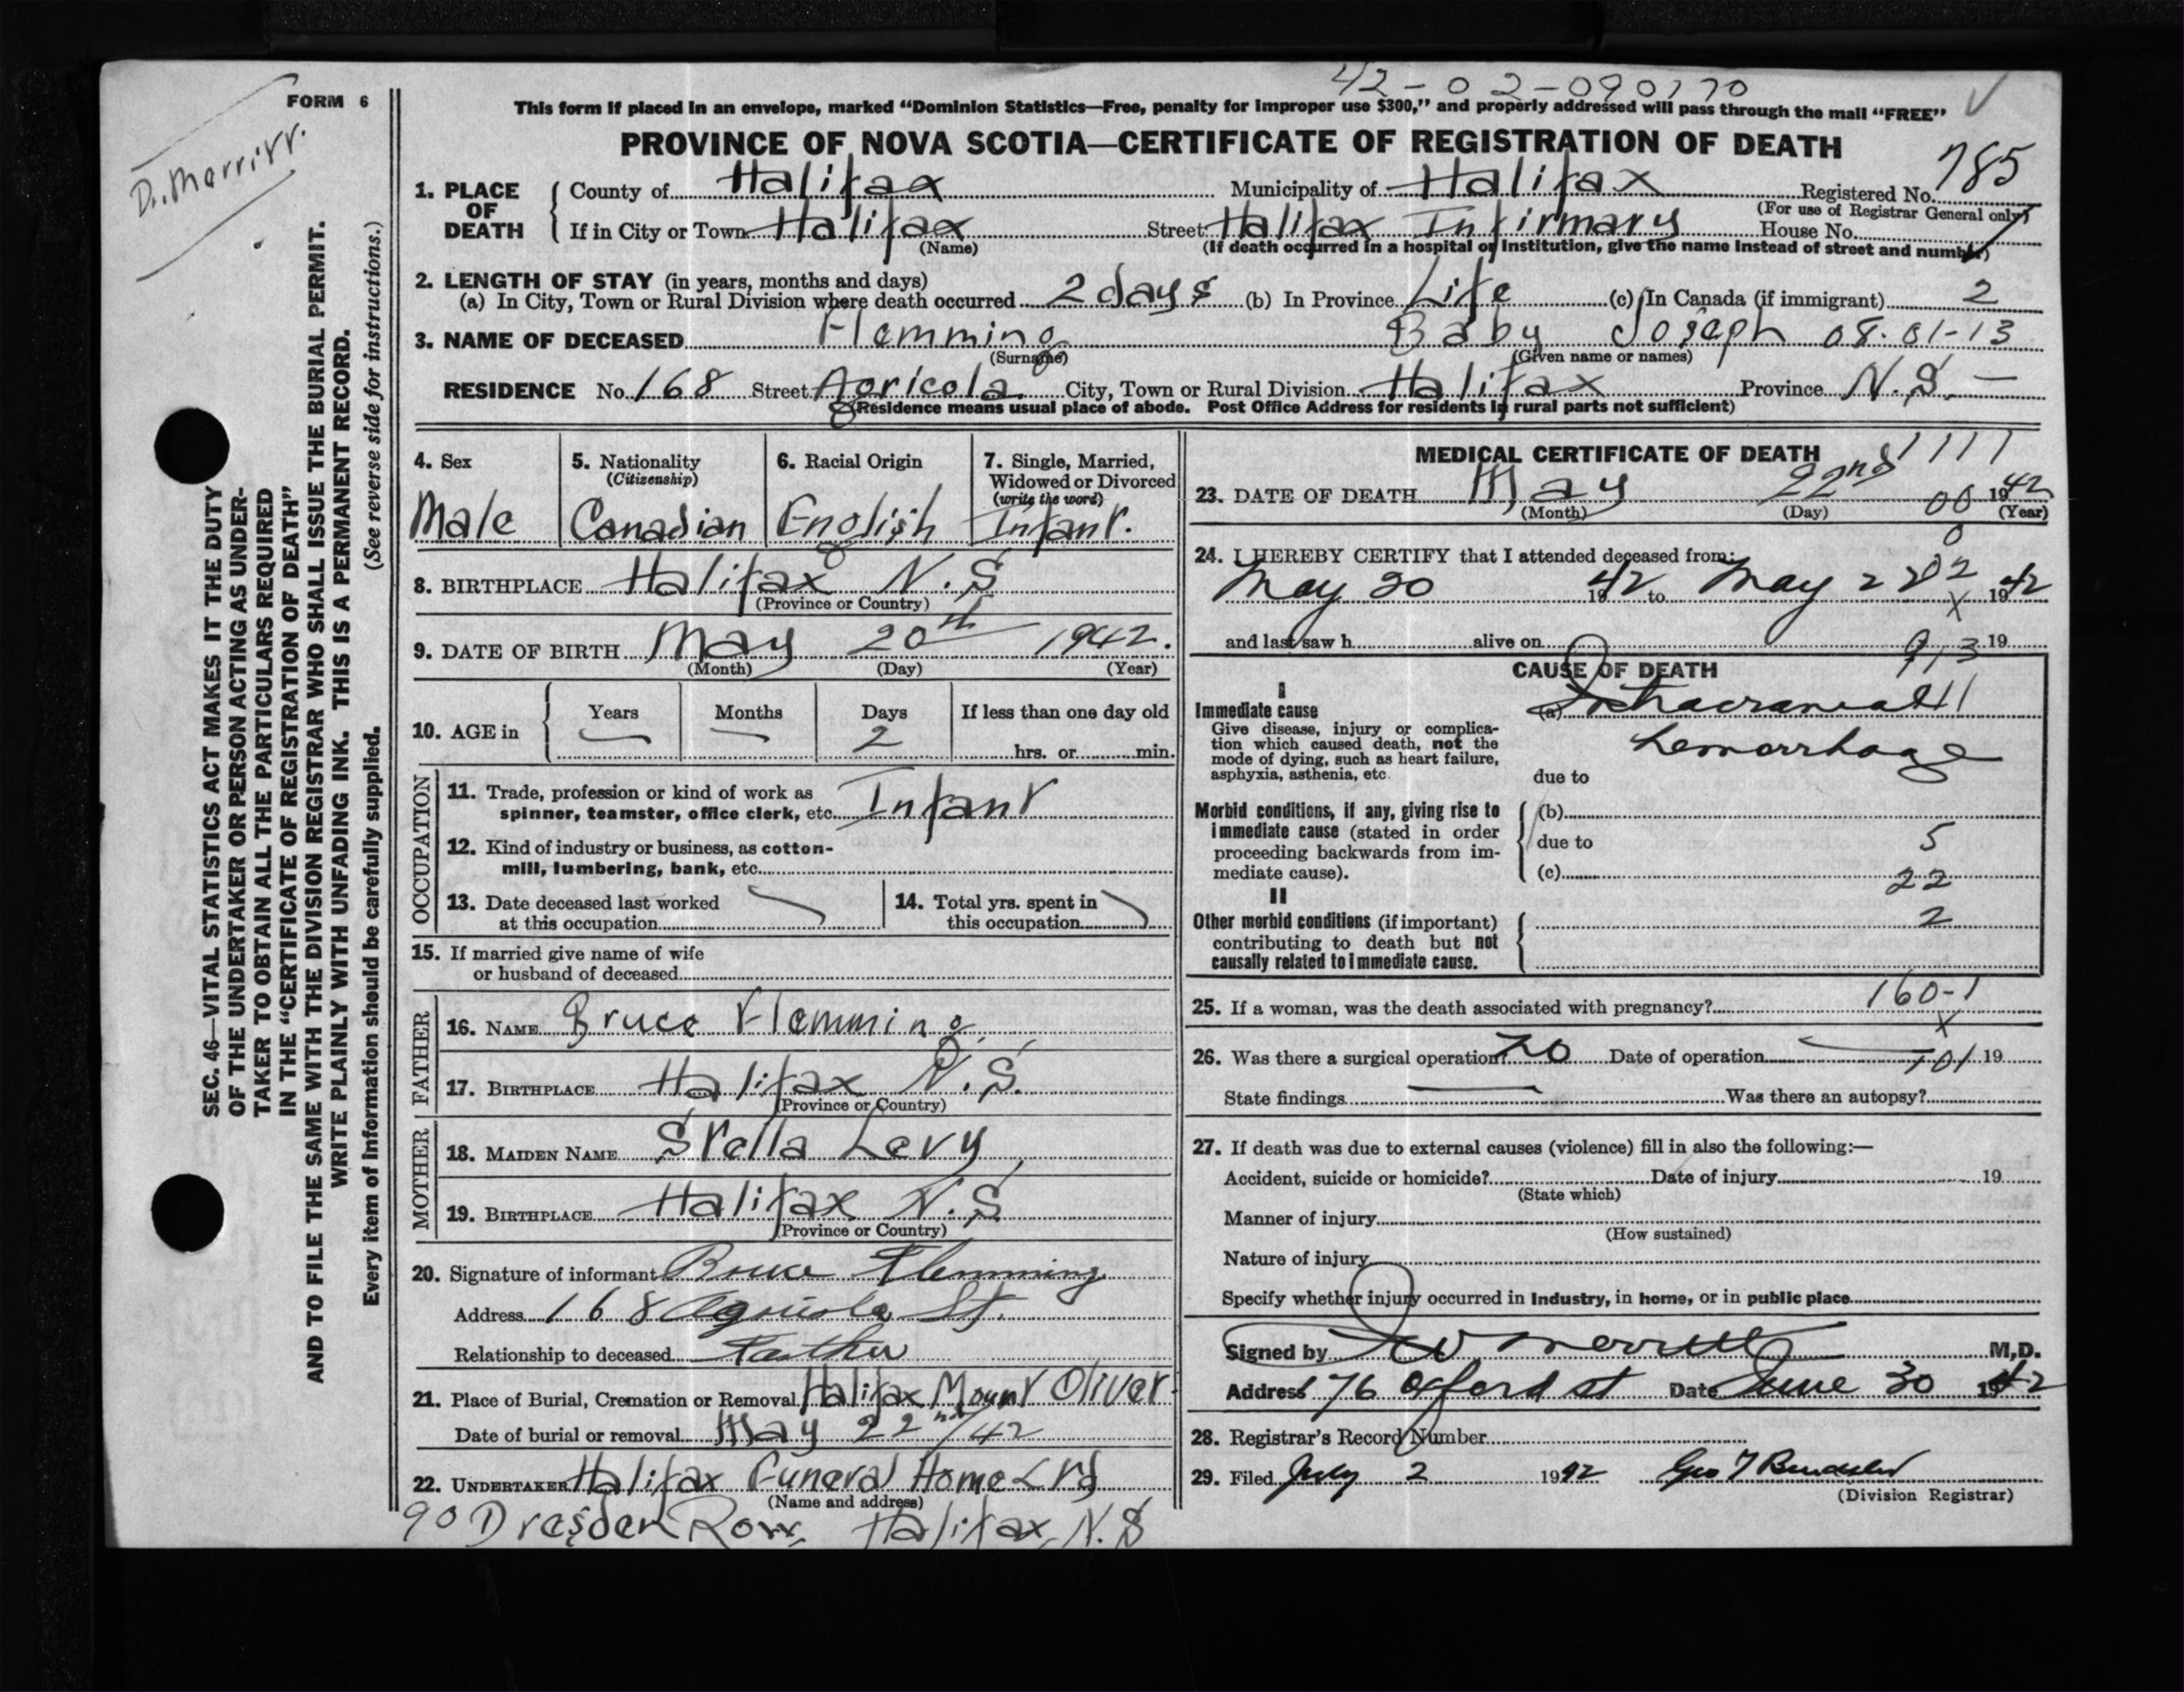 42-02-090770
FORM 6
This form if placed in an envelope, marked “Dominion Statistics—Free, penalty for improper use $300,” and properly addressed will pass through the mail “FREE”
Dr. Merritt.
PROVINCE OF NOVA SCOTIA—CERTIFICATE OF REGISTRATION OF DEATH
785
1. PLACE OF DEATH { County of Halifax Municipality of Halifax Registered No.
(For use of Registrar General only)
If in City or Town Halifax Street Halifax Infirmary House No.
(Name) (If death occurred in a hospital or institution, give the name instead of street and number)
2. LENGTH OF STAY (in years, months and days)
(a) In City, Town or Rural Division where death occurred 2 days (b) In Province Life (c) In Canada (if immigrant) 2
3. NAME OF DECEASED Flemming Baby Joseph 08-01-13
(Surname) (Given name or names)
RESIDENCE No. 168 Street Agricola City, Town or Rural Division Halifax Province N.S. —
(Residence means usual place of abode. Post Office Address for residents in rural parts not sufficient)
4. Sex 5. Nationality 6. Racial Origin 7. Single, Married,
(Citizenship) Widowed or Divorced
(write the word)
Male Canadian English Infant.
8. BIRTHPLACE Halifax N.S
(Province or Country)
9. DATE OF BIRTH May 20th 1942.
(Month) (Day) (Year)
10. AGE in { Years Months Days If less than one day old
— — 2 hrs. or min.
OCCUPATION
11. Trade, profession or kind of work as
spinner, teamster, office clerk, etc. Infant
12. Kind of industry or business, as cotton-
mill, lumbering, bank, etc.
13. Date deceased last worked 14. Total yrs. spent in
at this occupation this occupation
15. If married give name of wife
or husband of deceased
FATHER
16. NAME Bruce Flemming
17. BIRTHPLACE Halifax N.S.
(Province or Country)
MOTHER
18. MAIDEN NAME Stella Levy
19. BIRTHPLACE Halifax N.S
(Province or Country)
20. Signature of informant Bruce Flemming
Address 168 Agricola St.
Relationship to deceased Faither
21. Place of Burial, Cremation or Removal Halifax Mount Olivet
Date of burial or removal May 22nd/42
22. UNDERTAKER Halifax Funeral Home Ltd
(Name and address)
90 Dresden Row, Halifax, N.S
MEDICAL CERTIFICATE OF DEATH 1111
23. DATE OF DEATH May 22nd 1942
(Month) (Day) 00 (Year)
0
24. I HEREBY CERTIFY that I attended deceased from:
May 20 1942 to May 22 1942
X
and last saw h alive on 19
CAUSE OF DEATH
I
Immediate cause (a) Intracranial
Give disease, injury or complica-
tion which caused death, not the hemorrhage
mode of dying, such as heart failure,
asphyxia, asthenia, etc. due to
Morbid conditions, if any, giving rise to { (b)
immediate cause (stated in order due to 5
proceeding backwards from im-
mediate cause). (c) 22
II
Other morbid conditions (if important) 2
contributing to death but not
causally related to immediate cause.
25. If a woman, was the death associated with pregnancy? 160-1
X
26. Was there a surgical operation? no Date of operation — 101 19
State findings — Was there an autopsy?
27. If death was due to external causes (violence) fill in also the following:—
Accident, suicide or homicide? Date of injury 19
(State which)
Manner of injury
(How sustained)
Nature of injury
Specify whether injury occurred in industry, in home, or in public place
Signed by Merritt M.D.
Address 176 Oxford st Date June 30 1942
28. Registrar's Record Number
29. Filed July 2 1942 Geo
(Division Registrar)
SEC. 46—VITAL STATISTICS ACT MAKES IT THE DUTY
OF THE UNDERTAKER OR PERSON ACTING AS UNDER-
TAKER TO OBTAIN ALL THE PARTICULARS REQUIRED
IN THE “CERTIFICATE OF REGISTRATION OF DEATH”
AND TO FILE THE SAME WITH THE DIVISION REGISTRAR WHO SHALL ISSUE THE BURIAL PERMIT.
WRITE PLAINLY WITH UNFADING INK. THIS IS A PERMANENT RECORD.
Every item of information should be carefully supplied. (See reverse side for instructions.)